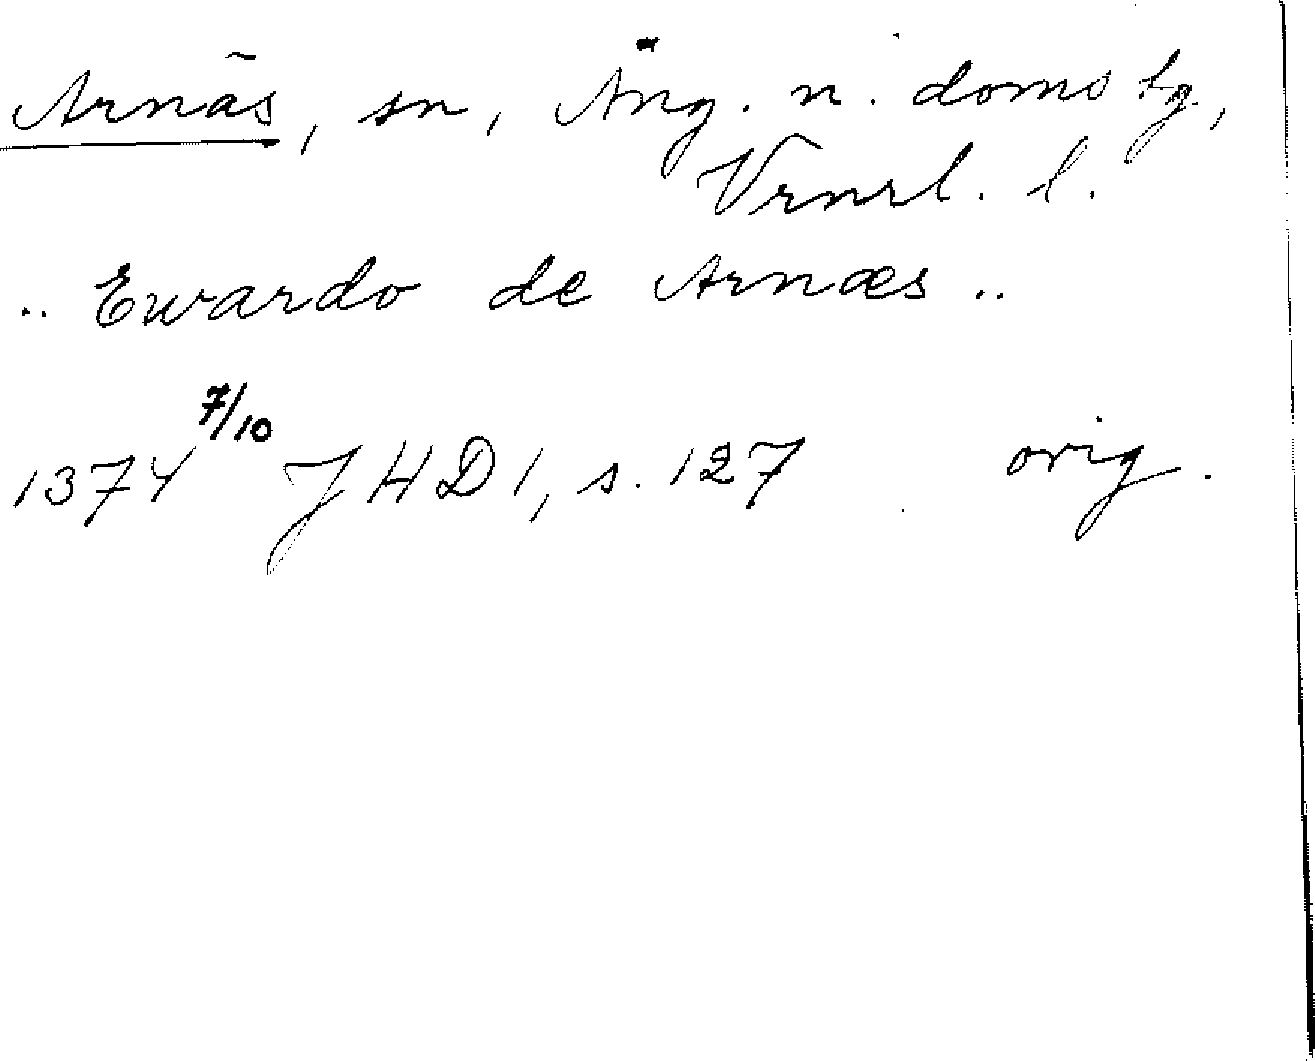 Arnäs, sn, Äng. n. doms tg.,
Vrnrl. l.
.. Ewardo de Arnæs ..
1374 7/10 JHD 1, s. 127 orig.